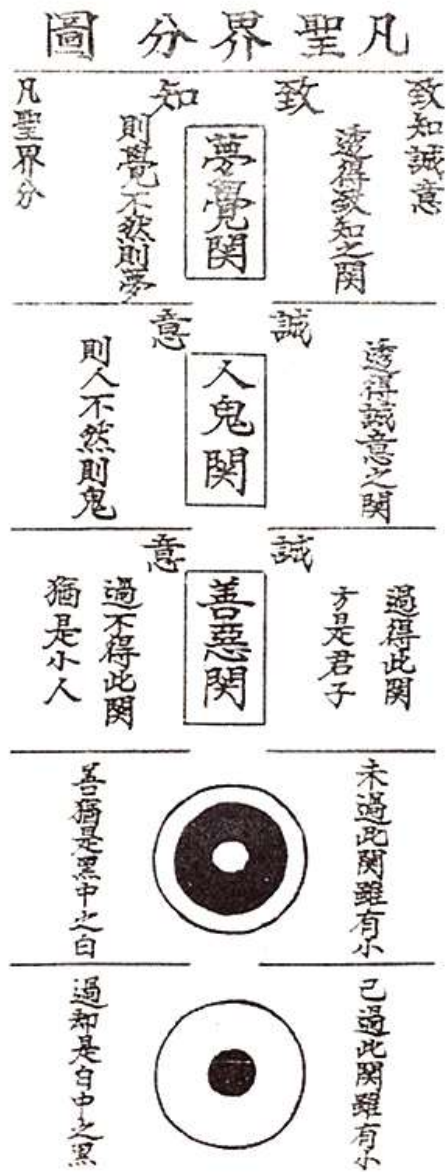 凡聖界分圖
致知誠意
致知
透得致知之関
夢覺関
則覺不然則夢
凡聖界分
誠意
透得誠意之関
人鬼関
則人不然則鬼
誠意
過得此関
方是君子
善惡関
過不得此関
猶是小人
未過此関雖有小
善猶是黑中之白
已過此関雖有小
過却是白中之黑